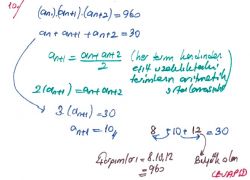 (an).(an+1).(an+2)=960
an + an+1 + an+2 = 30
an+1 = an+an+2 / 2 (her terim kendinden eşit uzaklıktaki terimlerin aritmetik ortalaması)
2(an+1) = an+an+2
3(an+1) = 30
an+1 = 10
8 + 10 + 12 = 30
Çarpımları = 8.10.12
= 960
Büyük olan
(CEVAP 12)